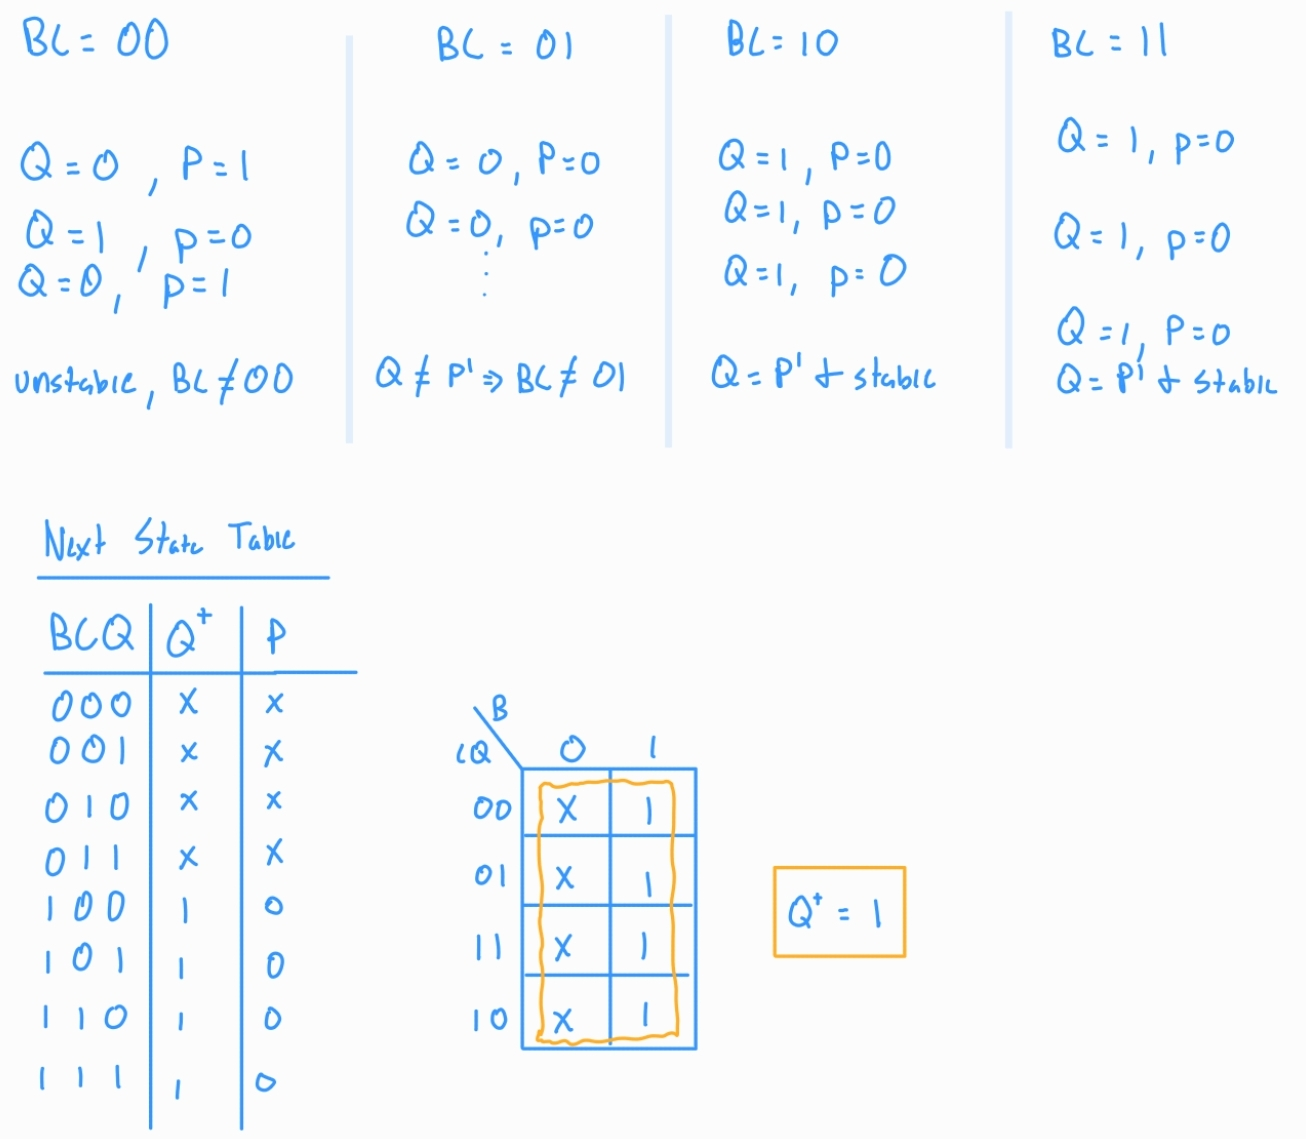 BC = 00
Q = 0 , P = 1
Q = 1 , p = 0
Q = 0 , p = 1
unstable, BC ≠ 00
BC = 01
Q = 0, P = 0
Q = 0, p = 0
⋮
Q ≠ P' ⇒ BC ≠ 01
BC = 10
Q = 1, P = 0
Q = 1, p = 0
Q = 1, p = 0
Q = P' + stable
BC = 11
Q = 1, p = 0
Q = 1, p = 0
Q = 1, P = 0
Q = P' + stable
Next State Table
BCQ Q⁺ P
000 X X
001 X X
010 X X
011 X X
100 1 0
101 1 0
110 1 0
111 1 0
B
CQ 0 1
00 X 1
01 X 1
11 X 1
10 X 1
Q⁺ = 1